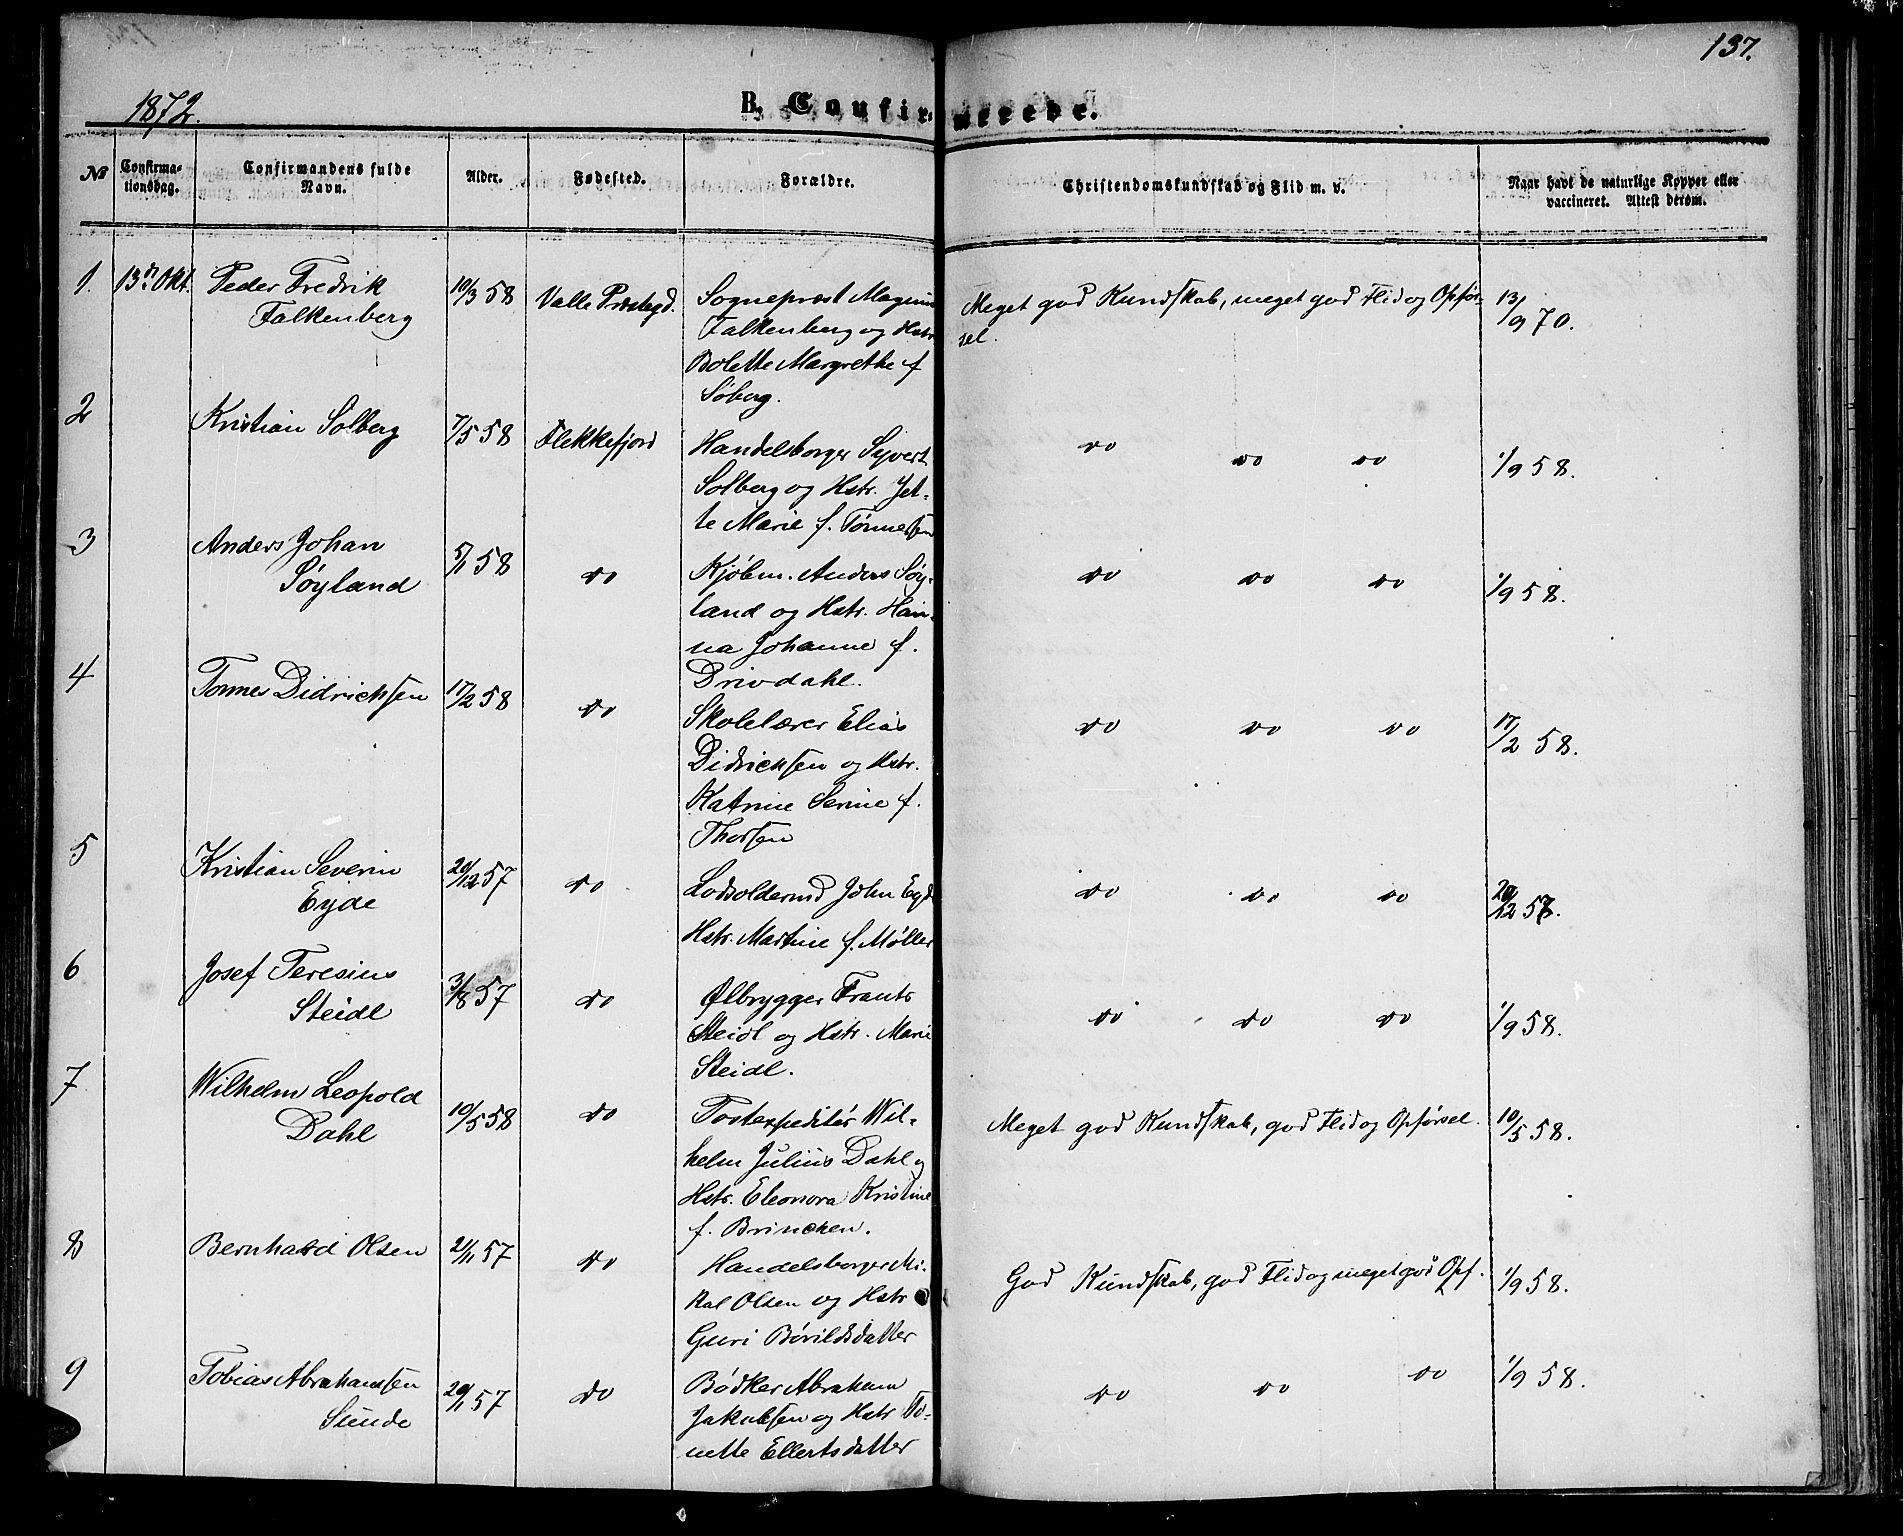 137.
1872.
B. Confirmerede.
№ Confirma-tionsdag. Confirmandens fulde Navn. Alder. Fødested. Forældre. Christendomskundskab og Flid m. v. Naar havt de naturlige Kopper eller vaccineret. Attest derom.
1. 13de Okt. Peder Fredrik 10/3 58 Valle Præstegd. Sognepræst Magnus Meget god Kundskab, meget god Flid og Opfør- 13/9 70.
Falkenberg Falkenberg og Hstr. sel.
Bolette Margrethe f.
Søberg.
2 Kristian Solberg 7/5 58 Flekkefjord Handelsborger Syvert do do do 1/9 58.
Solberg og Hstr. Jet-
te Marie f. Tønnessen
3 Anders Johan 5/1 58 do Kjøbm. Anders Søy- do do do 1/9 58.
Søyland land og Hstr. Han-
na Johanne f.
Drivdahl.
4 Tønnes Didrichsen 17/2 58 do Skolelærer Elias do do do 17/2 58.
Didrichsen og Hstr.
Katrine Serine f.
Thorsen
5 Kristian Severin 20/12 57 do Lodsoldermd John Eyde do do do 20/12 57.
Eyde Hstr. Martine f. Møller
6 Josef Teresius 3/8 57 do Ølbrygger Frants do do do 1/9 58.
Steidl Steidl og Hstr. Marie
Steidl.
7 Wilhelm Leopold 10/5 58 do Postexpeditør Wil- Meget god Kundskab, god Flid og Opførsel. 10/5 58.
Dahl helm Julius Dahl og
Hstr. Eleonora Kristine
f. Brincken.
8 Bernhard Olsen 21/11 57 do Handelsborger Mi- God Kundskab, god Flid og meget god Opf. 1/9 58.
kal Olsen og Hstr
Guri Bårildsdatter
9 Tobias Abrahamsen 20/11 57 do Bødker Abraham do do do 1/9 58.
Sunde Jakobsen og Hstr To-
nette Ellertsdatter